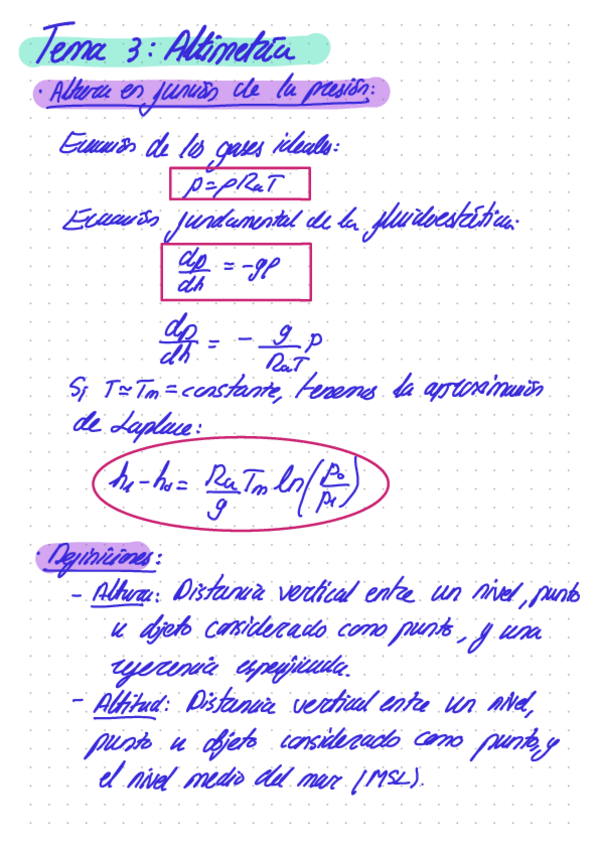 Tema 3: Altimetría
· Altura en función de la presión:
Ecuación de los gases ideales:
p = ρRaT
Ecuación fundamental de la fluidoestática:
dp/dh = -gρ
dp/dh = - g/(RaT) p
Si T ≃ Tm = constante, tenemos la aproximación
de Laplace:
h1 - h0 = Ra/g Tm ln(p0/p1)
· Definiciones:
- Altura: Distancia vertical entre un nivel, punto
u objeto considerado como punto, y una
referencia especificada.
- Altitud: Distancia vertical entre un nivel,
punto u objeto considerado como punto, y
el nivel medio del mar (MSL).